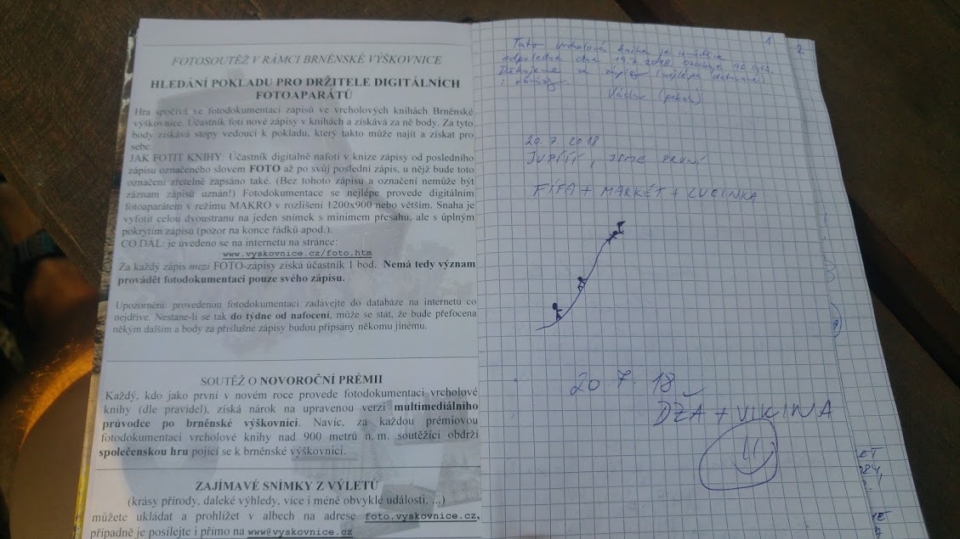 FOTOSOUTĚŽ V RÁMCI BRNĚNSKÉ VÝŠKOVNICE
HLEDÁNÍ POKLADU PRO DRŽITELE DIGITÁLNÍCH
FOTOAPARÁTŮ
Hra spočívá ve fotodokumentaci zápisů ve vrcholových knihách Brněnské
výškovnice. Účastník fotí nové zápisy v knihách a získává za ně body. Za tyto
body získává stopy vedoucí k pokladu, který takto může najít a získat pro
sebe.
JAK FOTIT KNIHU: Účastník digitálně nafotí v knize zápisy od posledního
zápisu označeného slovem FOTO až po svůj poslední zápis, u nějž bude toto
označení zřetelně zapsáno také. (Bez tohoto zápisu a označení nemůže být
záznam zápisů uznán!) Fotodokumentace se nejlépe provede digitálním
fotoaparátem v režimu MAKRO v rozlišení 1200x900 nebo větším. Snaha je
vyfotit celou dvoustranu na jeden snímek s minimem přesahu, ale s úplným
pokrytím zápisů (pozor na konce řádků apod.).
CO DÁL: je uvedeno se na internetu na stránce:
www.vyskovnice.cz/foto.htm
Za každý zápis mezi FOTO-zápisy získá účastník 1 bod. Nemá tedy význam
provádět fotodokumentaci pouze svého zápisu.
Upozornění: provedenou fotodokumentaci zadávejte do databáze na internetu co
nejdříve. Nestane-li se tak do týdne od nafocení, může se stát, že bude přefocena
někým dalším a body za příslušné zápisy budou připsány někomu jinému.
SOUTĚŽ O NOVOROČNÍ PRÉMII
Každý, kdo jako první v novém roce provede fotodokumentaci vrcholové
knihy (dle pravidel), získá nárok na upravenou verzi multimediálního
průvodce po brněnské výškovnici. Navíc, za každou prémiovou
fotodokumentaci vrcholové knihy nad 900 metrů n. m. soutěžící obdrží
společenskou hru pojící se k brněnské výškovnici.
ZAJÍMAVÉ SNÍMKY Z VÝLETŮ
(krásy přírody, daleké výhledy, více i méně obvyklé události, ...)
můžete ukládat a prohlížet v albech na adrese foto.vyskovnice.cz,
případně je posílejte i přímo na www@vyskovnice.cz
1
2
Tato vrcholová kniha je umístěna
odpoledne dne 19.7.2018
Děkujeme za zápisy
Václav
20. 7. 2018
JUPÍÍÍ, JSME PRVNÍ
FÍFA + MARKÉT + LUCINKA
20. 7. 18
DŽA + VIKINA